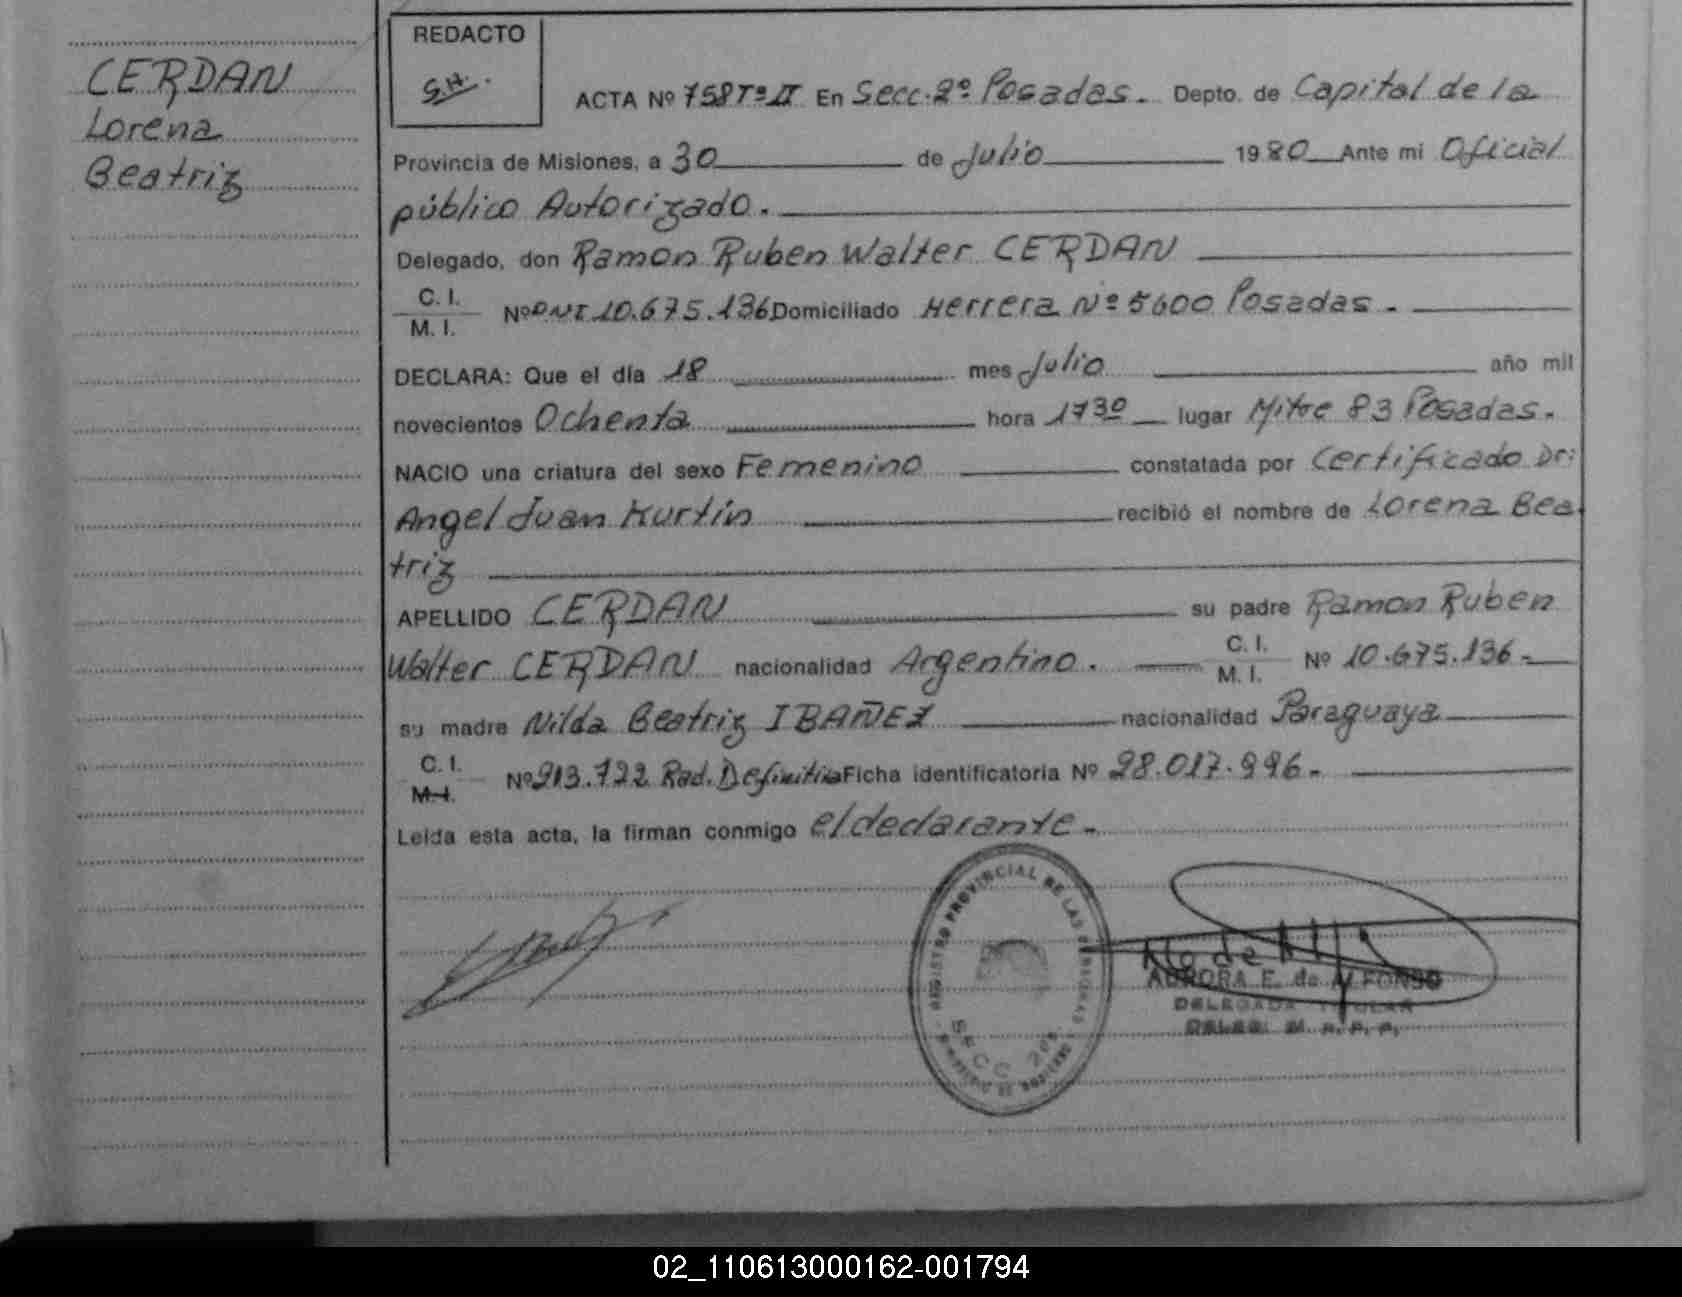 CERDAN
Lorena
Beatriz
REDACTO
S.H.
ACTA Nº 758 Tº II En Secc. 2º Posadas. Depto. de Capital de la
Provincia de Misiones, a 30 de Julio 1980 Ante mi Oficial
público Autorizado.
Delegado, don Ramon Ruben Walter CERDAN
C. I.
M. I.
Nº DNI 10.675.136 Domiciliado Herrera Nº 5600 Posadas.
DECLARA: Que el día 18 mes Julio año mil
novecientos Ochenta hora 1730 lugar Mitre 83 Posadas.
NACIO una criatura del sexo Femenino constatada por Certificado Dr:
Angel Juan Kurtin recibió el nombre de Lorena Bea
triz
APELLIDO CERDAN su padre Ramon Ruben
Walter CERDAN nacionalidad Argentino. C. I. M. I. Nº 10.675.136.-
su madre Nilda Beatriz IBAÑEZ nacionalidad Paraguaya
C. I.
M. I.
Nº 913.722 Rad. Definitiva Ficha identificatoria Nº 98.017.996.-
Leída esta acta, la firman conmigo el declarante.-
REGISTRO PROVINCIAL DE LAS PERSONAS
SECC 2da.
AURORA E. de ALFONSO
DELEGADA TITULAR
02_110613000162-001794